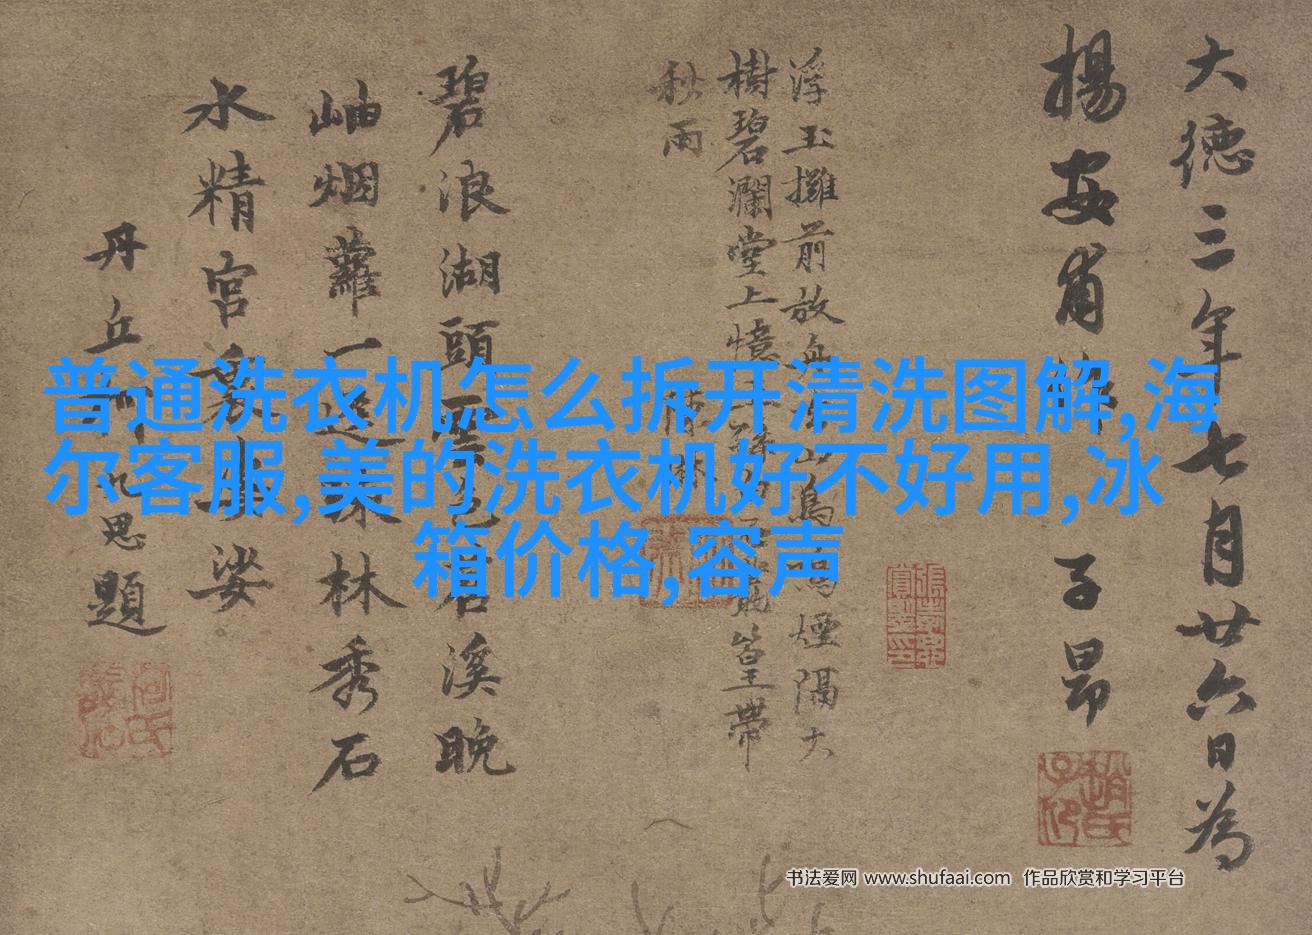 普通洗衣机怎么拆开清洗图解,海
尔客服,美的洗衣机好不好用,冰
箱价格,容声
大德三年七月廿六日為
揚安甫 子昂
浮玉攤前放 煙隔大
樹碧瀾堂上憶 篁帶
秋雨
碧浪湖頭 溪晚
岫烟蘿一 林秀石
水精宮 娑
丹丘 思題
书法爱网 www.shufaai.com 作品欣赏和学习平台